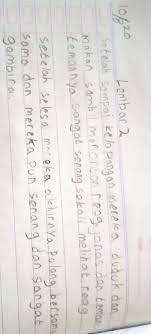 10/8 20
Lembar 2
Setelah sampai kelapangan mereka duduk dan
makan sambil menonton reog, adat dan teman
temannya sangat senang sekali melihat reog
setelah selesai mereka akhirnya pulang bersama
sama dan mereka pun senang dan sangat
gembira.